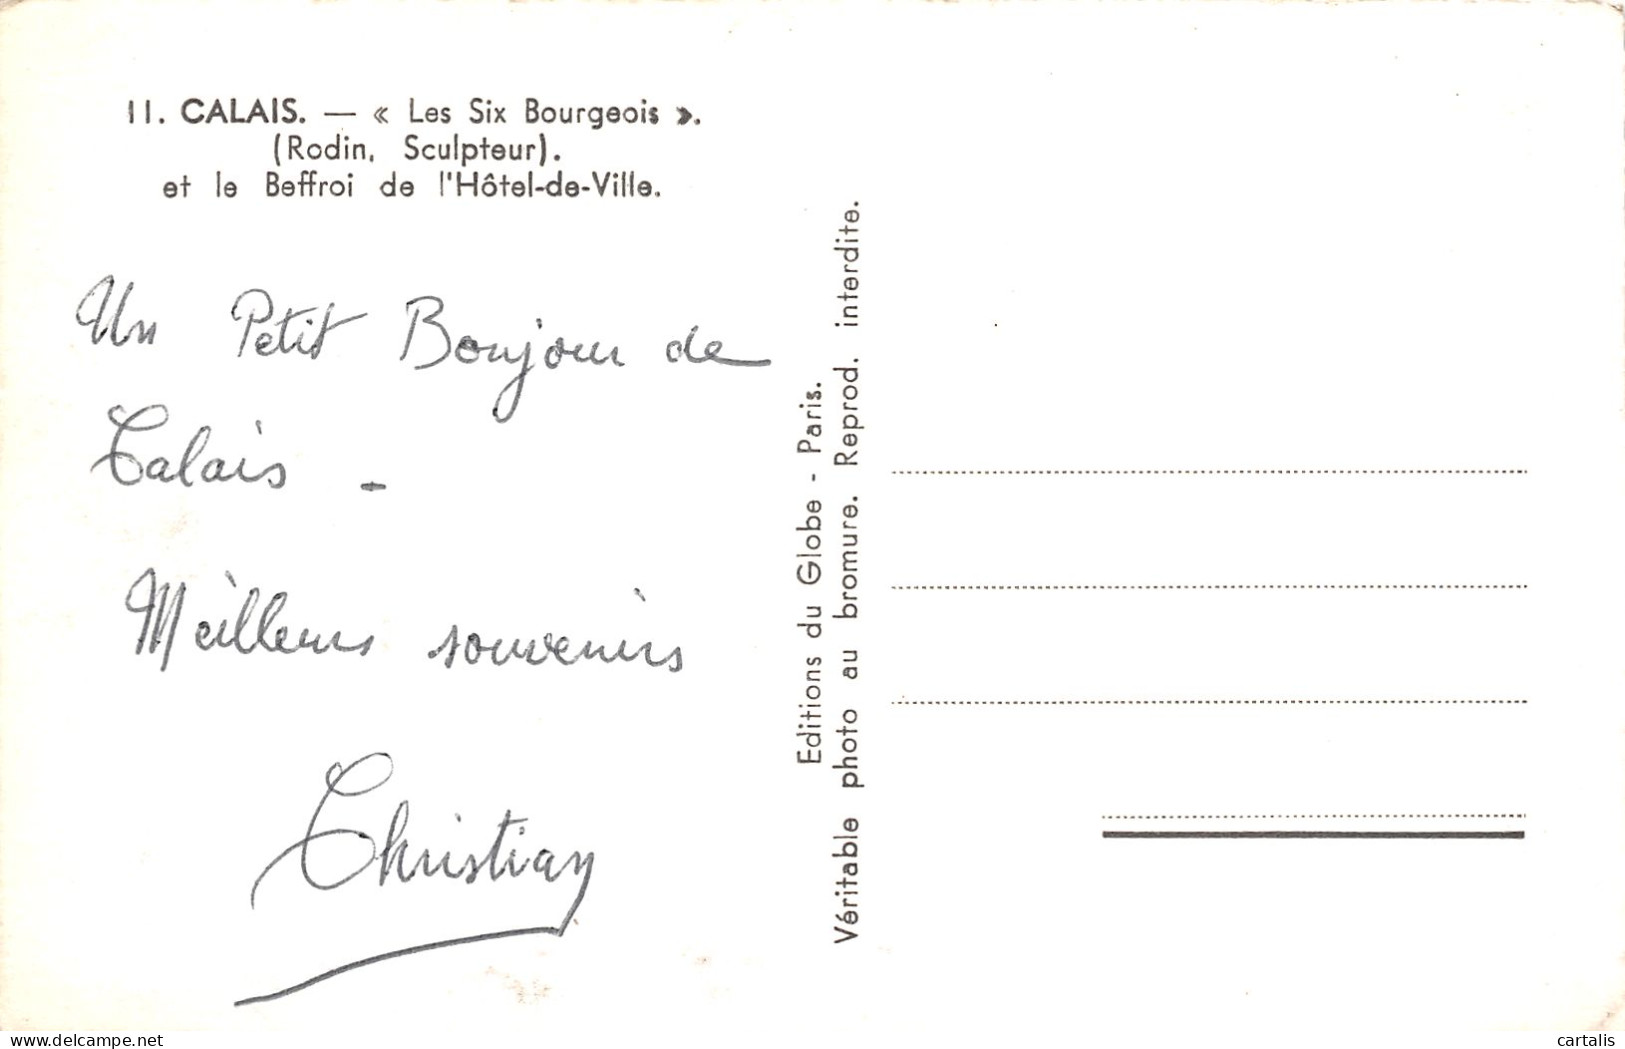 11. CALAIS. — « Les Six Bourgeois ».
(Rodin, Sculpteur).
et le Beffroi de l'Hôtel-de-Ville.
Un Petit Bonjour de
Calais -
Meilleurs souvenirs
Christian
Editions du Globe - Paris.
Véritable photo au bromure. Reprod. interdite.
www.delcampe.net
cartalis